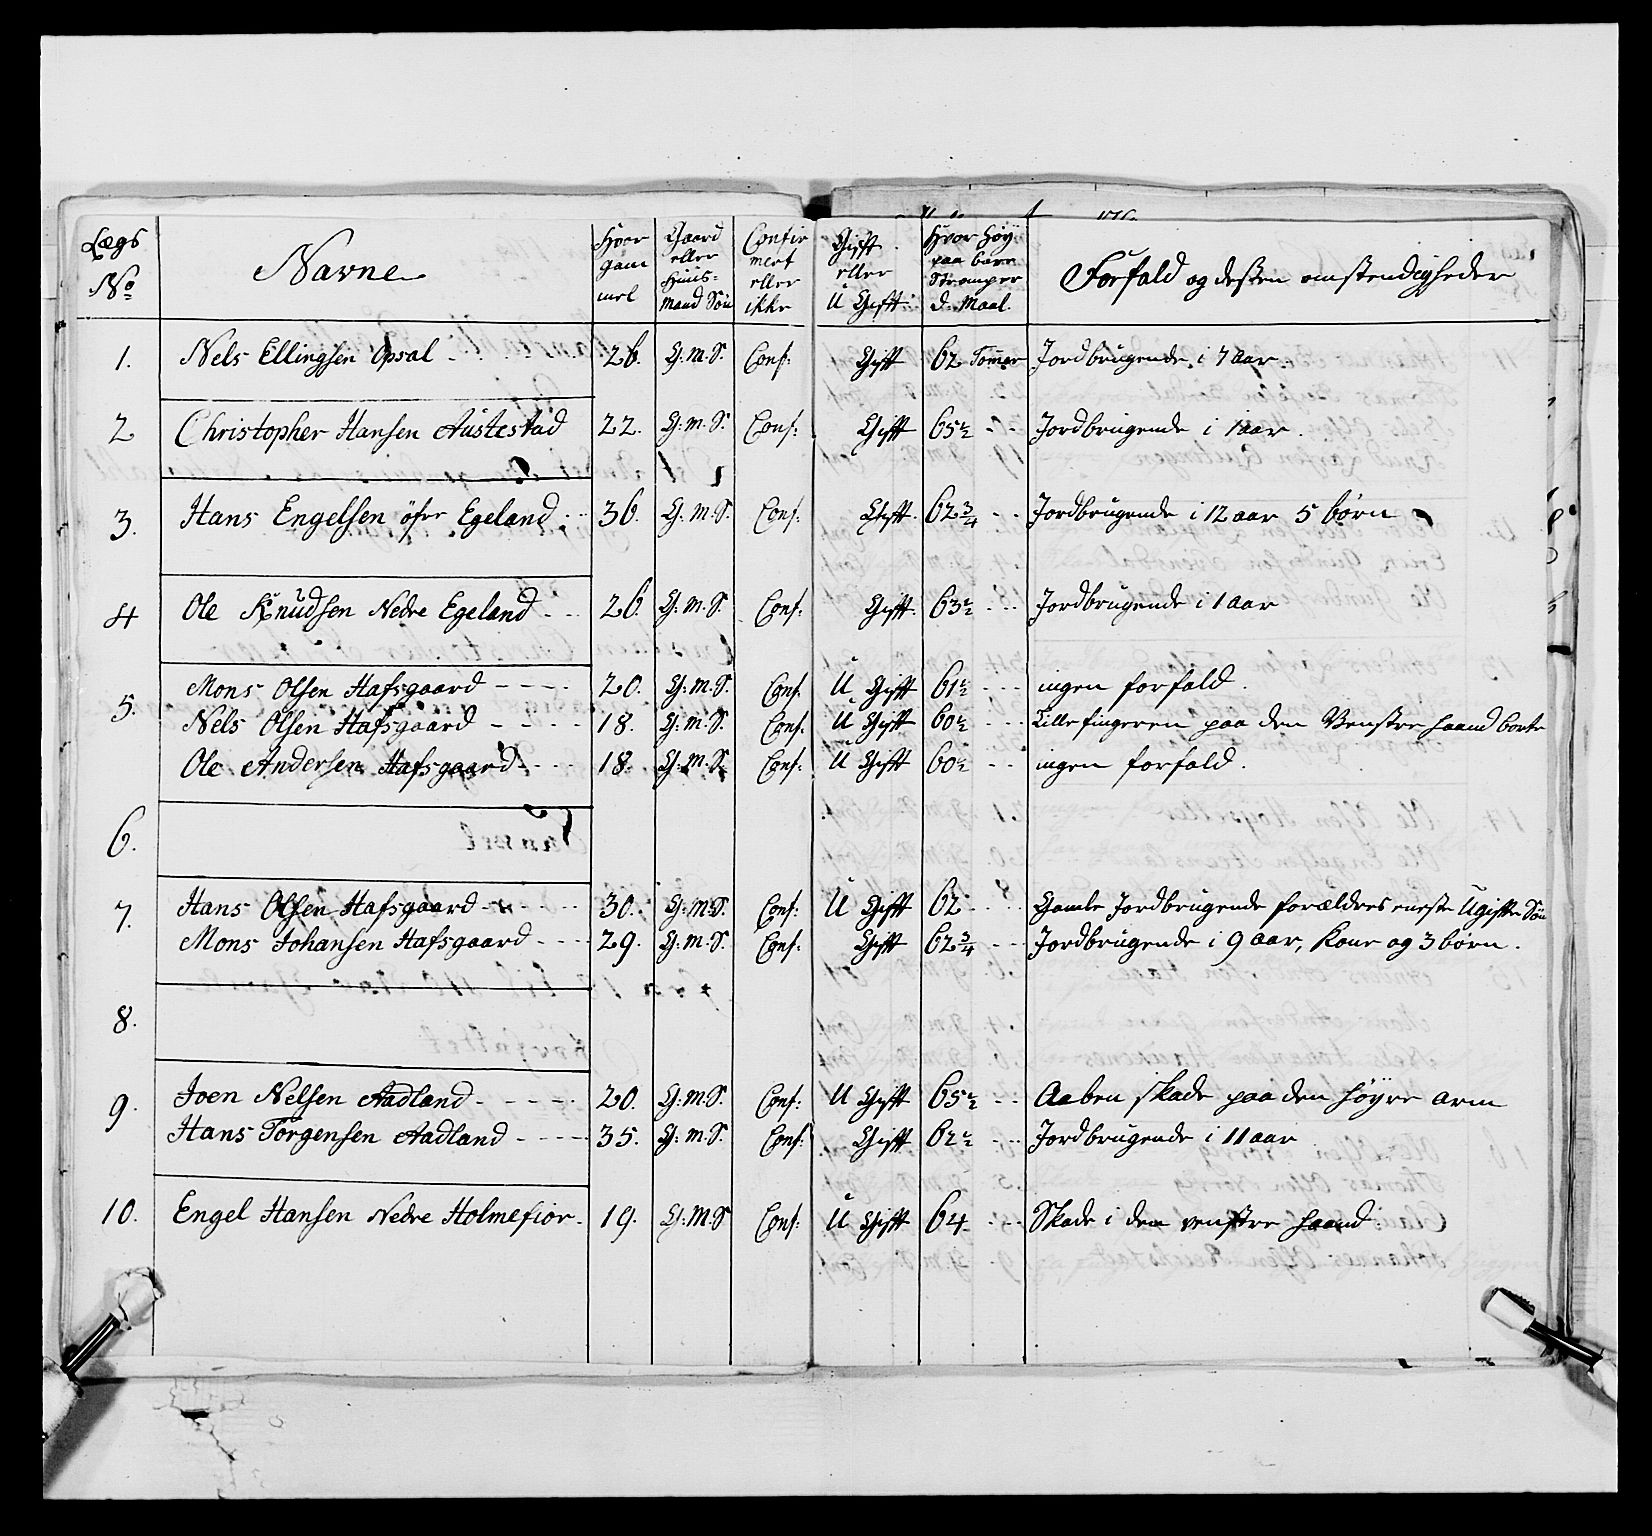 Lægs No | Navne | Hvor gammel | Gaard eller Huus= mand Søn | Confirmert eller ikke | Gift eller U Gift | Hvor Høy paa bare Strømper d. Maal. | Forfald og dessen omstendigheder
1. | Nels Ellingsen Opsal | 26. | G: M: S. | Conf: | Gift | 62 Tommer | Jordbrugende i 7 aar.
2 | Christopher Hansen Austestad | 22. | G: M: S. | Conf: | Gift | 65½ | Jordbrugende i 1 aar.
3. | Hans Engelsen öfre Egeland | 36. | G: M: S. | Conf: | Gift. | 62¾ | Jordbrugende i 12 aar 5 börn
4 | Ole Knudsen Nedre Egeland | 26. | G: M: S. | Conf: | Gift. | 63½ | Jordbrugende i 1 aar
5. | Mons Olsen Hafsgaard | 20. | G: M: S. | Conf: | U Gift | 61½ | ingen forfald.
Nels Olsen Hafsgaard | 18. | G: M: S. | Conf: | U Gift | 60½ | Lille fingeren paa den Venstre haand borte
Ole Andersen Hafsgaard | 18. | G: M: S. | Conf: | U Gift | 60½ | ingen forfald.
6.
7. | Hans Olsen Hafsgaard | 30. | G: M: S. | Conf: | U Gift | 62 | Gamle Jordbrugende forældres eneste Ugifte Søn
Mons Johansen Hafsgaard | 29. | G: M: S. | Conf: | Gift | 62¾ | Jordbrugende i 9 aar, Kone og 3 börn.
8.
9. | Joen Nelsen Aadland | 20. | G: M: S. | Conf: | U Gift | 65½ | Aaben skade paa den høyre arm
Hans Torgensen Aadland | 35. | G: M: S. | Conf: | Gift. | 62½ | Jordbrugende i 11 aar
10. | Engel Hansen Nedre Holmefior | 19. | G: M: S | Conf: | U Gift | 64 | Skade i den venstre haand.